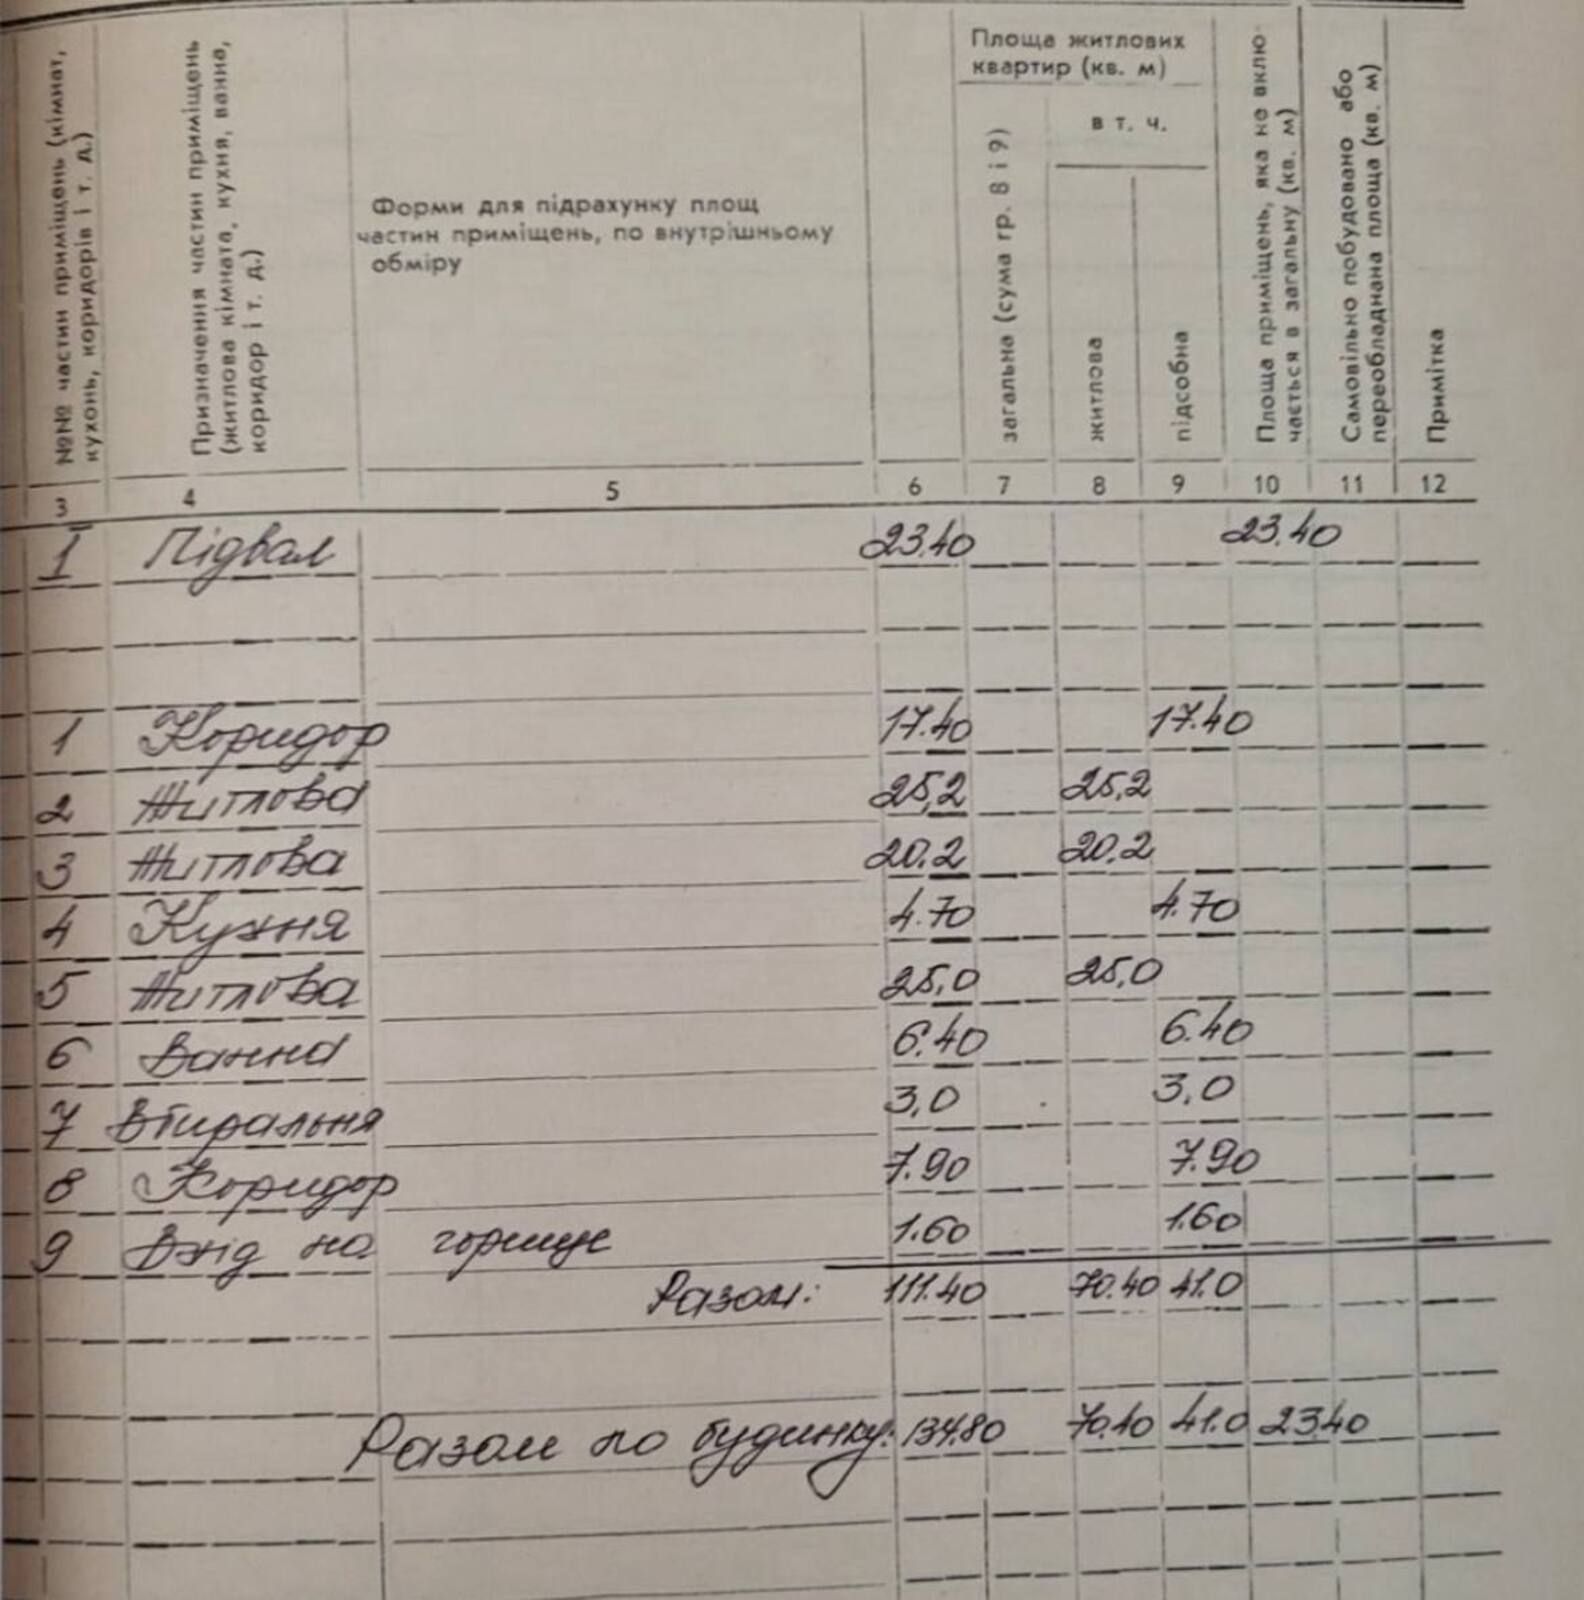 №№ частин приміщень (кімнат,
кухонь, коридорів і т. д.)
Призначення частин приміщень
(житлова кімната, кухня, ванна,
коридор і т. д.)
Форми для підрахунку площ
частин приміщень, по внутрішньому
обміру
Площа житлових
квартир (кв. м)
загальна (сума гр. 8 і 9)
в т. ч.
житлова
підсобна
Площа приміщень, яка не вклю-
чається в загальну (кв. м)
Самовільно побудовано або
переобладнана площа (кв. м)
Примітка
3 4 5 6 7 8 9 10 11 12
I Підвал 23.40 23.40
1 Коридор 17.40 17.40
2 Житлова 25,2 25,2
3 Житлова 20.2 20.2
4 Кухня 4.70 4.70
5 Житлова 25,0 25,0
6 Ванна 6.40 6.40
7 Вбиральня 3,0 3,0
8 Коридор 7.90 7.90
9 Вхід на горище 1.60 1.60
Разом: 111.40 70.40 41.0
Разом по будинку: 134.80 70.40 41.0 23.40